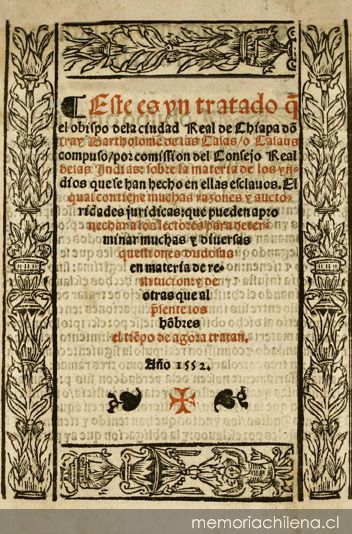 Este es vn tratado q̄
el obispo dela ciudad Real de Chiapa dō
fray Bartholome de las Casas/o Casaus
compuso/por comission del Consejo Real
delas Indias: sobre la materia de los yn-
dios que se han hecho en ellas esclauos. El
qual contiene muchas razones y aucto-
ridades juridicas: que pueden apro
uechar a los lectores para deter-
minar muchas y diuersas
questiones dudosas
en materia de re-
stitucion: y de
otras que al
p̄sente los
hōbres
el tiēpo de agora tratan.
Año 1552.
memoriachilena.cl